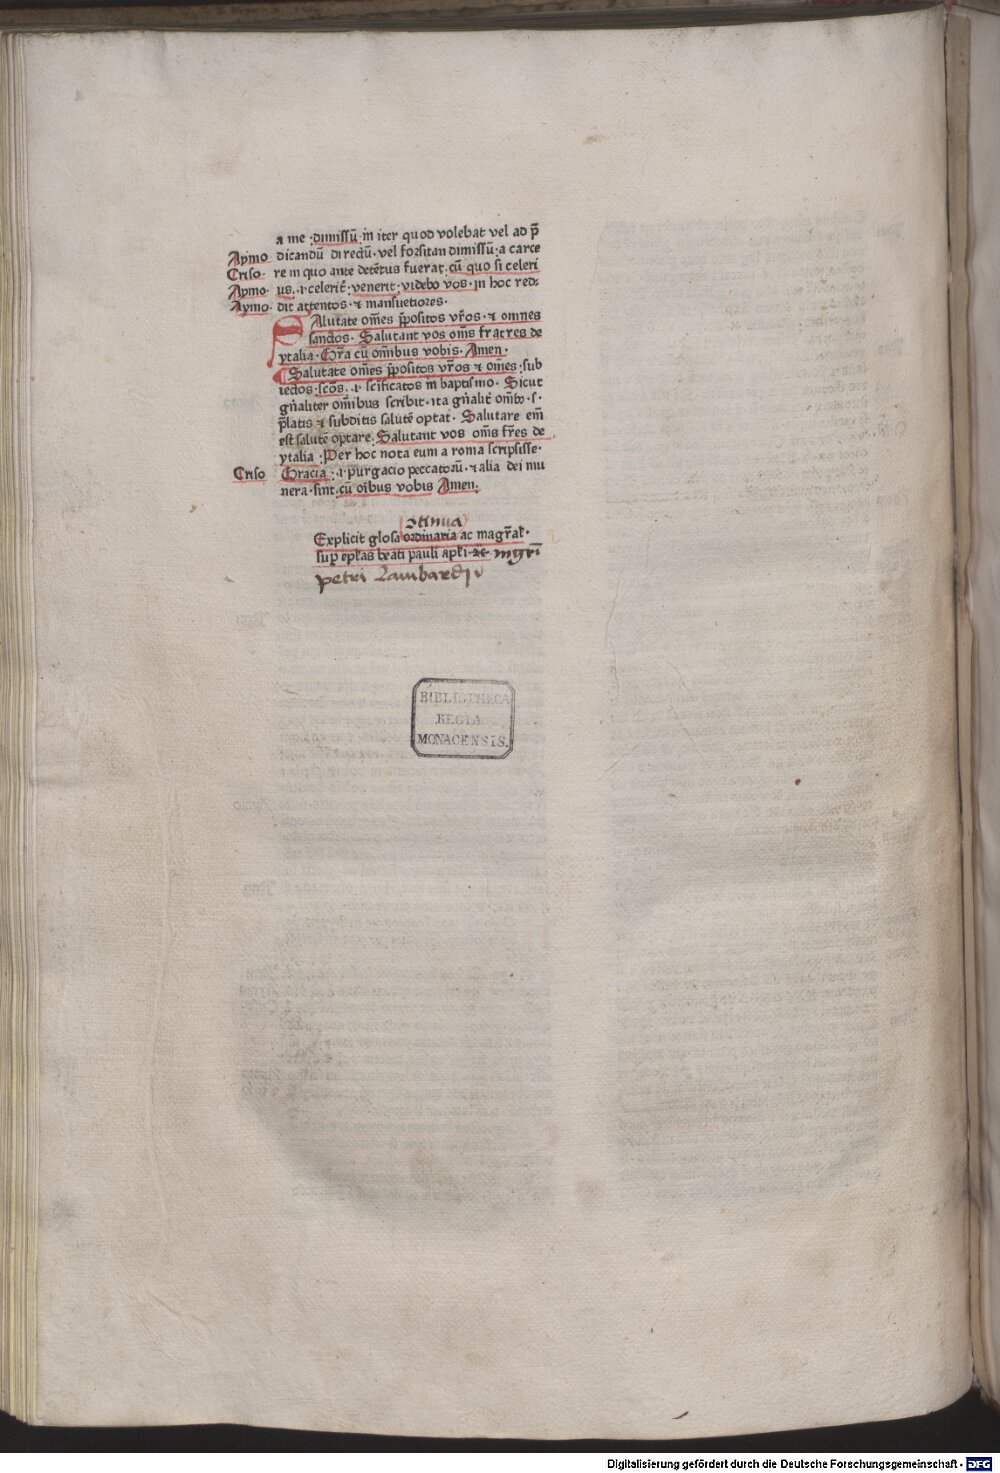 a me · dimissū · in iter quod volebat vel ad p̄
Aymo dicandū directū · vel forsitan dimissū · a carce
Criso · re in quo ante detētus fuerat · cū quo si celeri
Aymo · us · .i. celerit̄ · venerit · videbo vos · in hoc red:
Aymo · dit attentos · ⁊ mansuetiores ·
SAlutate om̄es p̄positos vr̄os · ⁊ omnes
sanctos · Salutant vos om̄s fratres de
ytalia · Gr̄a cū om̄ibus vobis · Amen ·
Salutate om̄es p̄positos vr̄os ⁊ om̄es · sub
iectos · scōs · .i. scificatos in baptismo · Sicut
gn̄aliter om̄ibus scribit · ita gn̄alit̄ om̄ib̄ · s ·
p̄latis ⁊ subditis salutē optat · Salutare em̄
est salutē optare · Salutant vos om̄s fr̄es de
ytalia · Per hoc nota eum a roma scripsisse ·
Criso Gracia · .i. purgacio peccatorū · ⁊ alia dei mu
nera · sint · cū oībus vobis Amen ·
ɔtinua
Explicit glosa ordinaria ac magr̄al ·
sup ep̄las beati pauli apl̄i · ⁊c̄ · mgr̄i
petri Lambardi
BIBLIOTHECA
REGIA
MONACENSIS.
Digitalisierung gefördert durch die Deutsche Forschungsgemeinschaft - DFG